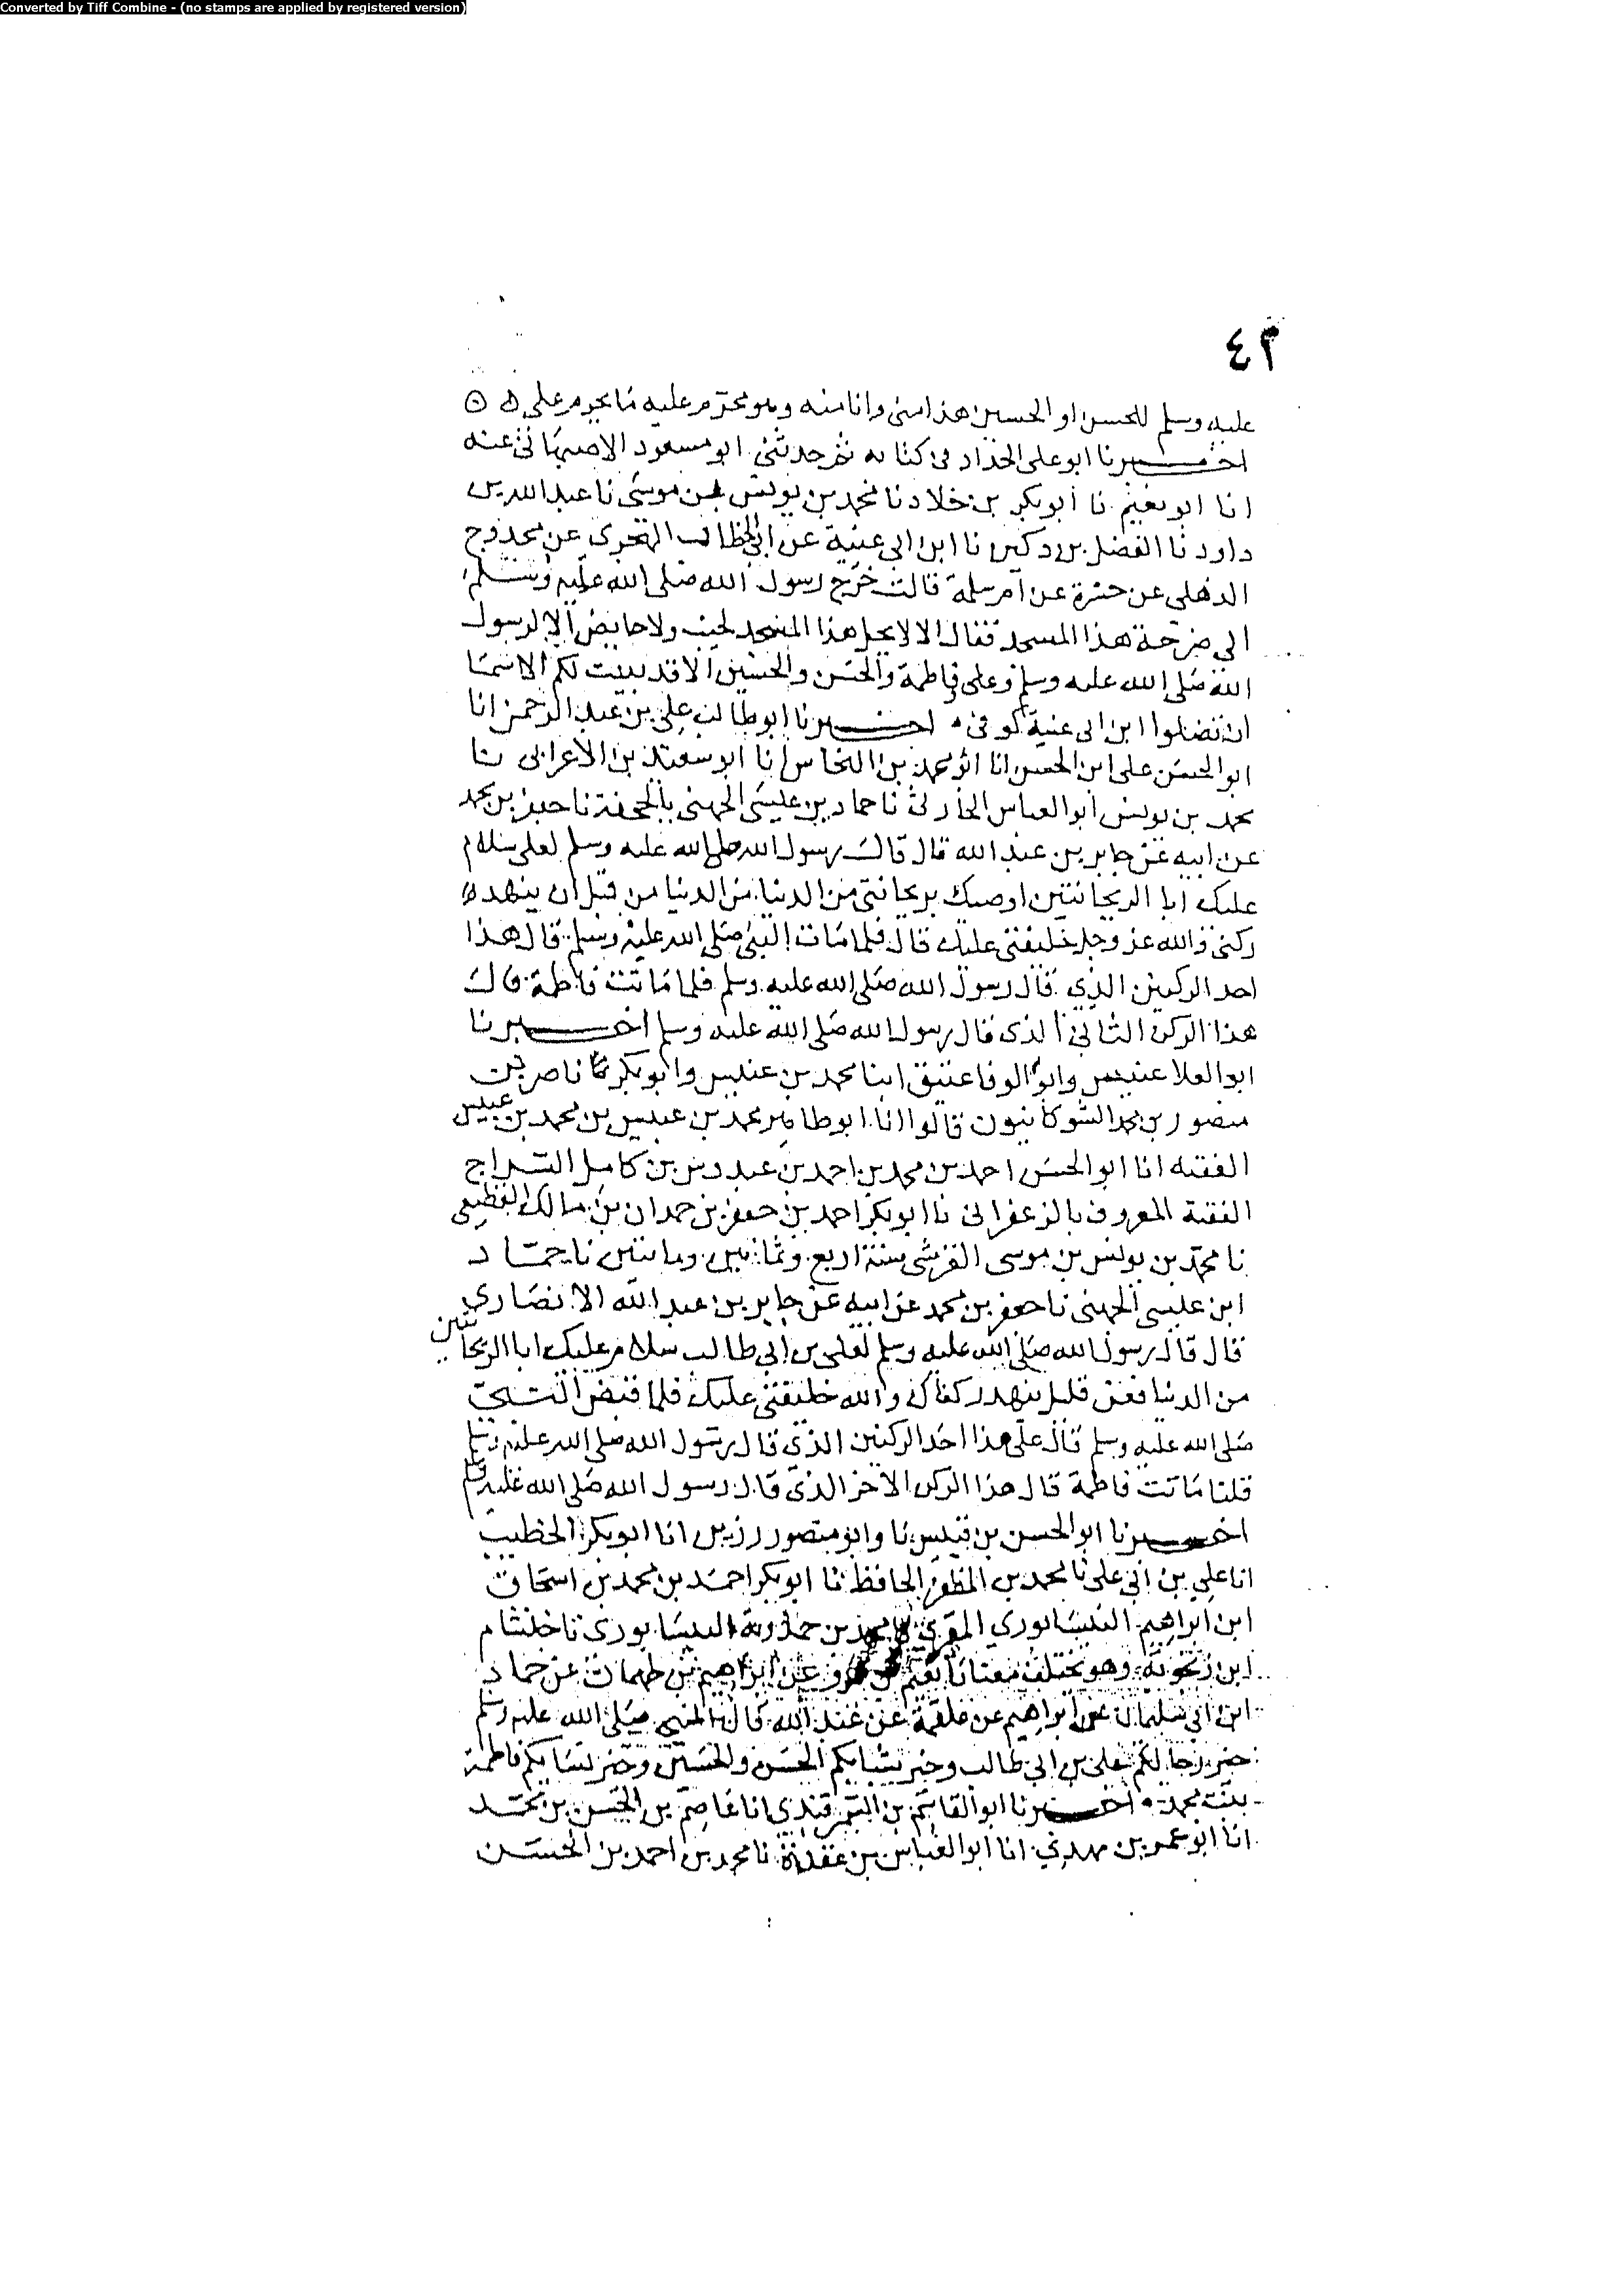 Converted by Tiff Combine - (no stamps are applied by registered version)
٤٢
عليه وسلم للحسن او الحسين هذا منى وانا منه وهو محرم عليه ما يحرم على
اخبرنا ابو على الحداد فى كتابه ثم حدثنى ابو مسعود الاصبهانى عنه
انا ابو نعيم نا أبو بكر بن خلاد نا محمد بن يونس بن موسى نا عبد الله بن
داود نا الفضل بن دكين نا ابن ابى عنية عن ابى الخطاب الهجرى عن محدوج
الذهلى عن جسرة عن ام سلمة قالت خرج رسول الله صلى الله عليه وسلم
الى صرحة هذا المسجد فقال الا لا يحل هذا المسجد لجنب ولا حايض الا لرسول
الله صلى الله عليه وسلم وعلى وفاطمة والحسن والحسين الا قد بينت لكم الاسما
ان تضلوا ابن ابى عنية كوفى اخبرنا ابو طالب على بن عبد الرحمن انا
ابو الحسن على ابن الحسن انا ابو محمد بن النحاس انا ابو سعيد بن الاعرابى نا
محمد بن يونس ابو العباس الحارثى نا حماد بن عيسى الجهنى بالجحفة نا جعفر بن محمد
عن ابيه عن جابر بن عبد الله قال قال رسول الله صلى الله عليه وسلم لعلى سلام
عليك ابا الريحانتين اوصيك بريحانتى من الدنيا من الدنيا من قبل ان ينهد
ركنى والله عز وجل خليفتى عليك قال فلما مات النبى صلى الله عليه وسلم قال هذا
احد الركنين الذى قال رسول الله صلى الله عليه وسلم فلما ماتت فاطمة قال
هذا الركن الثانى الذى قال رسول الله صلى الله عليه وسلم اخبرنا
ابو العلا عنبس وابو الوفا عتيق ابنا محمد بن عنبس وابو بكر ناصر بن
منصور بن محمد الشوكانيون قالوا انا ابو طاهر محمد بن عبيس بن محمد بن عبيس
الفقيه انا ابو الحسن احمد بن محمد بن احمد بن عبدوس بن كامل السراج
الفقيه المعروف بالزعفرانى نا ابو بكر احمد بن جعفر بن حمدان بن مالك القطيعى
نا محمد بن يونس بن موسى القرشى سنة اربع وثمانين ومائتين نا حماد
ابن عيسى الجهنى نا جعفر بن محمد عن ابيه عن جابر بن عبد الله الانصارى
قال قال رسول الله صلى الله عليه وسلم لعلى بن ابى طالب سلام عليك ابا الريحانتين
من الدنيا فعن قليل ينهد ركناك والله خليفتى عليك فلما قبض النبى
صلى الله عليه وسلم قال على هذا احد الركنين الذى قال رسول الله صلى الله عليه وسلم
فلما ماتت فاطمة قال هذا الركن الآخر الذى قال رسول الله صلى الله عليه وسلم
اخبرنا ابو الحسن بن قبيس نا وابو منصور رزيق انا ابو بكر الخطيب
انا على بن ابى على نا محمد بن المظفر الحافظ نا ابو بكر احمد بن محمد بن اسحاق
ابن ابراهيم النيسابورى المقرى محمد بن حمدويه النيسابورى نا خشنام
ابن زنجويه وهو نعيم بن عن ابراهيم بن طهمان عن حماد
ابن ابى سليمان عن ابراهيم عن علقمة عن عبد الله قال النبى صلى الله عليه وسلم
خير رجالكم على بن ابى طالب وخير شبابكم الحسن والحسين وخير نسايكم فاطمة
بنت محمد اخبرنا ابو القاسم بن السمرقندى انا عاصم بن الحسن بن محمد
انا ابو عمر بن مهدى انا ابو العباس بن عقدة نا محمد بن احمد بن الحسن